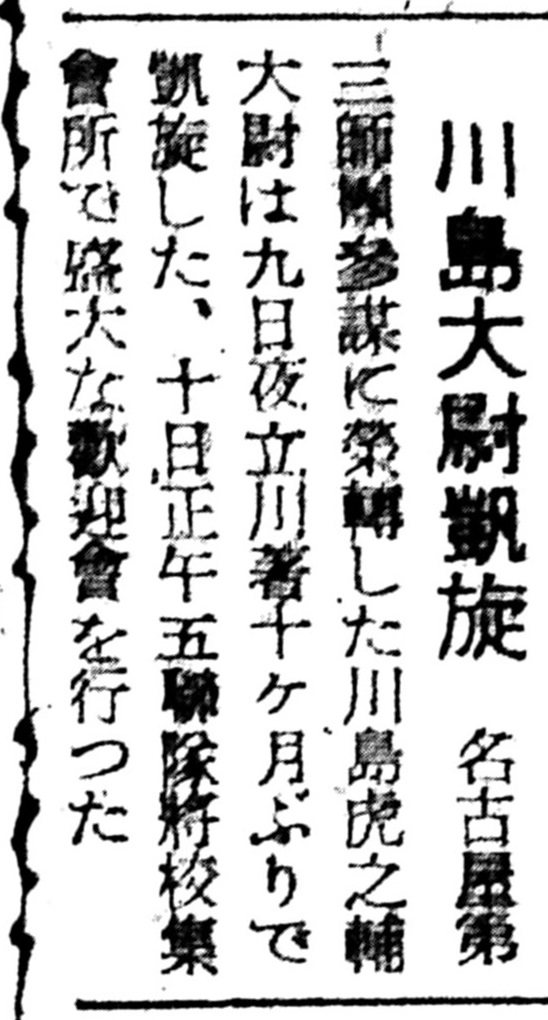 川島大尉凱旋　名古屋第
三師團參謀に榮轉した川島虎之輔
大尉は九日夜立川著十ケ月ぶりで
凱旋した、十日正午五聯隊將校集
會所で盛大な歡迎會を行つた